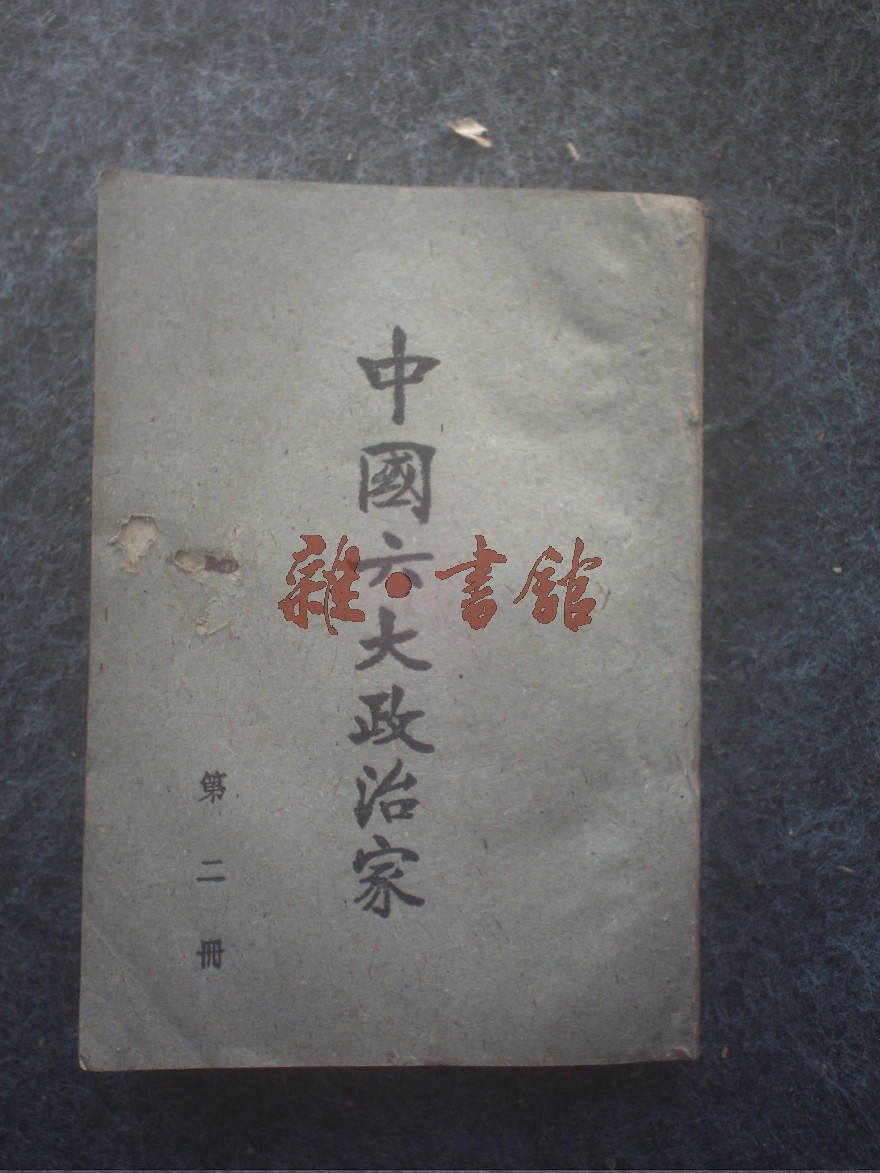 中國六大政治家
第二冊
雜·書館